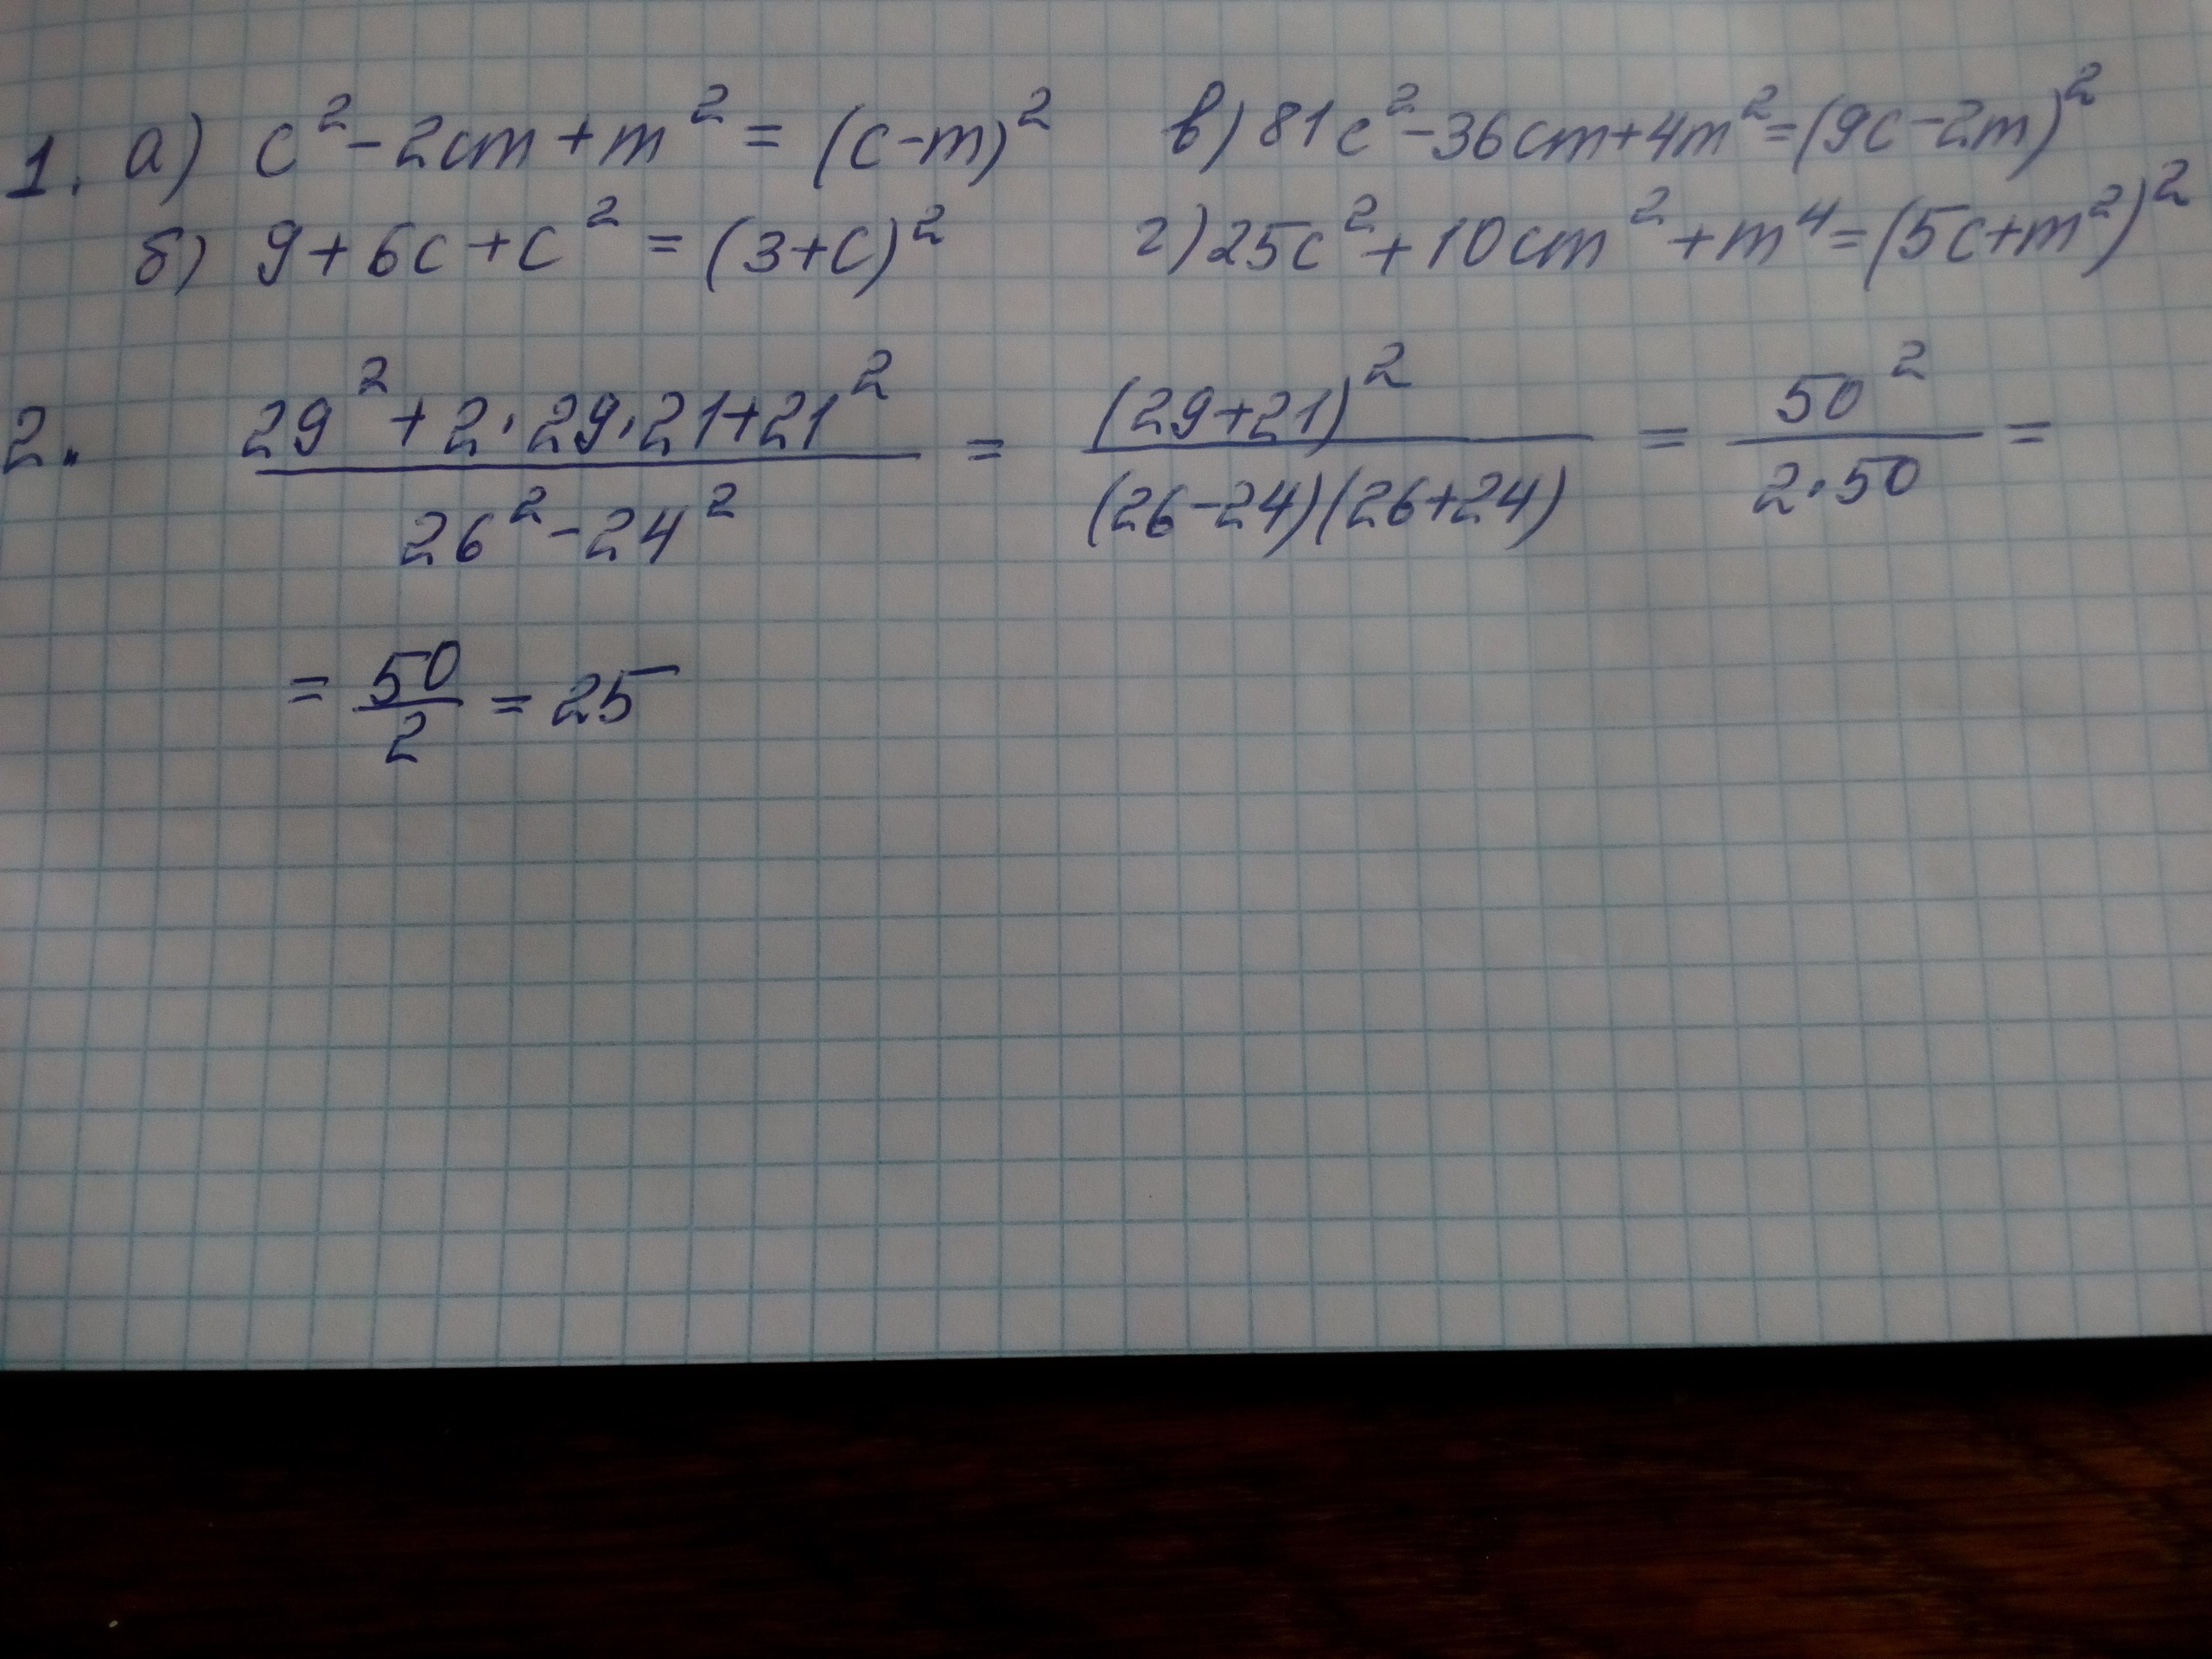 1. а) c² - 2cm + m² = (c-m)² в) 81c² - 36cm + 4m² = (9c - 2m)²
б) 9 + 6c + c² = (3+c)² г) 25c² + 10cm² + m⁴ = (5c + m²)²
2. (29² + 2·29·21 + 21²)/(26² - 24²) = (29+21)²/((26-24)(26+24)) = 50²/(2·50) =
= 50/2 = 25